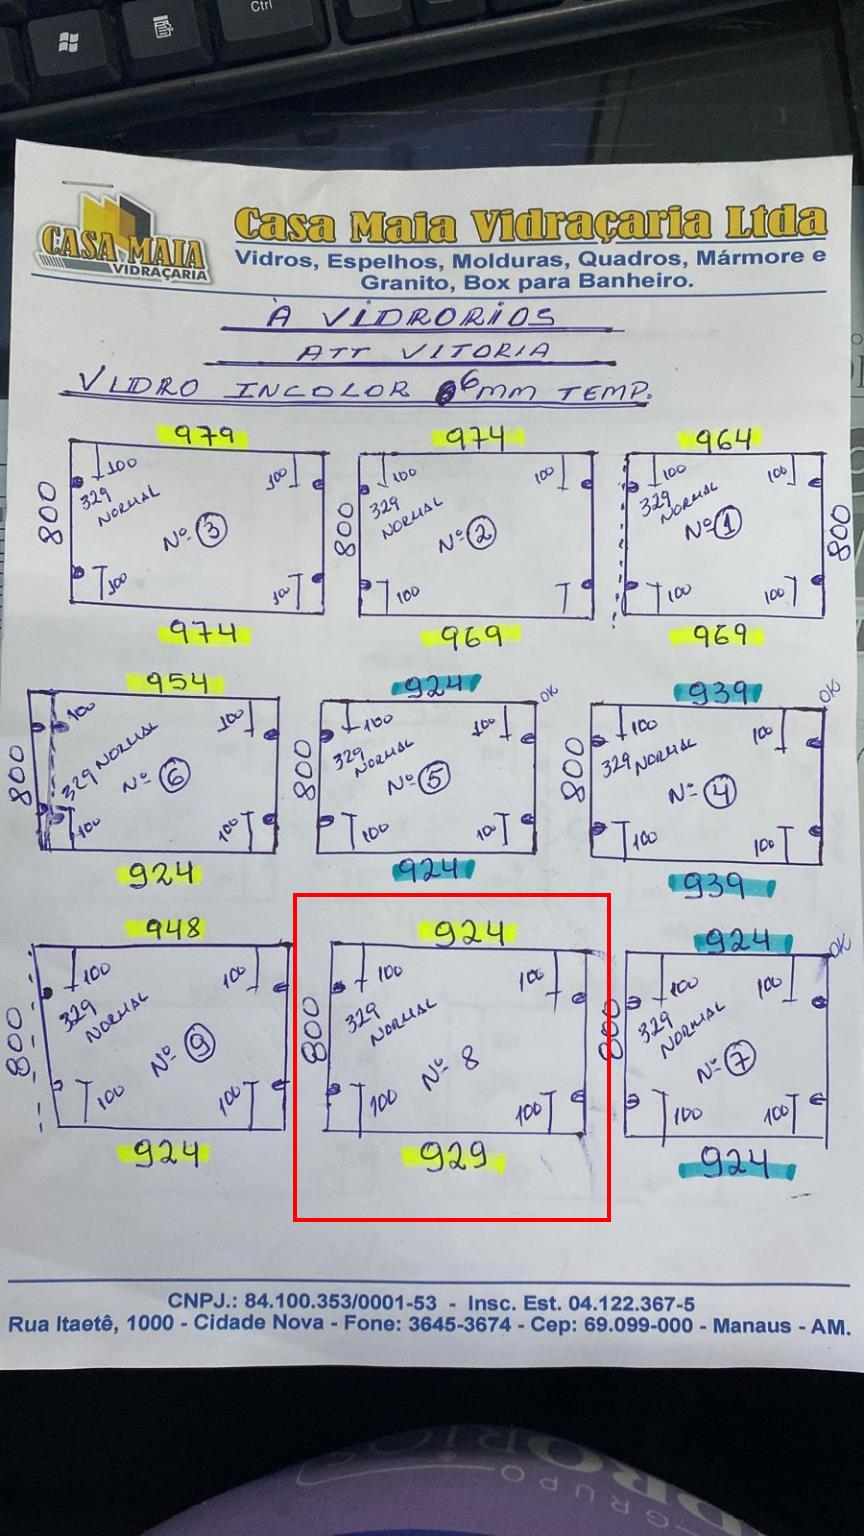 Ctrl
CASA MAIA
VIDRAÇARIA
Casa Maia Vidraçaria Ltda
Vidros, Espelhos, Molduras, Quadros, Mármore e
Granito, Box para Banheiro.
À VIDRORIOS
ATT VITORIA
VIDRO INCOLOR 6MM TEMP.
979 974 964
100 100 100 100 100 100
800 329 NORMAL 800 329 NORMAL 329 NORMAL 800
Nº 3 Nº 2 Nº 1
100 100 100 100 100
974 969 969
954 924 OK 939 OK
100 100 100 100 100 100
800 329 NORMAL 800 329 NORMAL 800 329 NORMAL
Nº 6 Nº 5 Nº 4
100 100 100 100 100 100
924 924 939
948 924 924 OK
100 100 100 100 100 100
800 329 NORMAL 800 329 NORMAL 800 329 NORMAL
Nº 9 Nº 8 Nº 7
100 100 100 100 100 100
924 929 924
CNPJ.: 84.100.353/0001-53 - Insc. Est. 04.122.367-5
Rua Itaetê, 1000 - Cidade Nova - Fone: 3645-3674 - Cep: 69.099-000 - Manaus - AM.
GRUPO